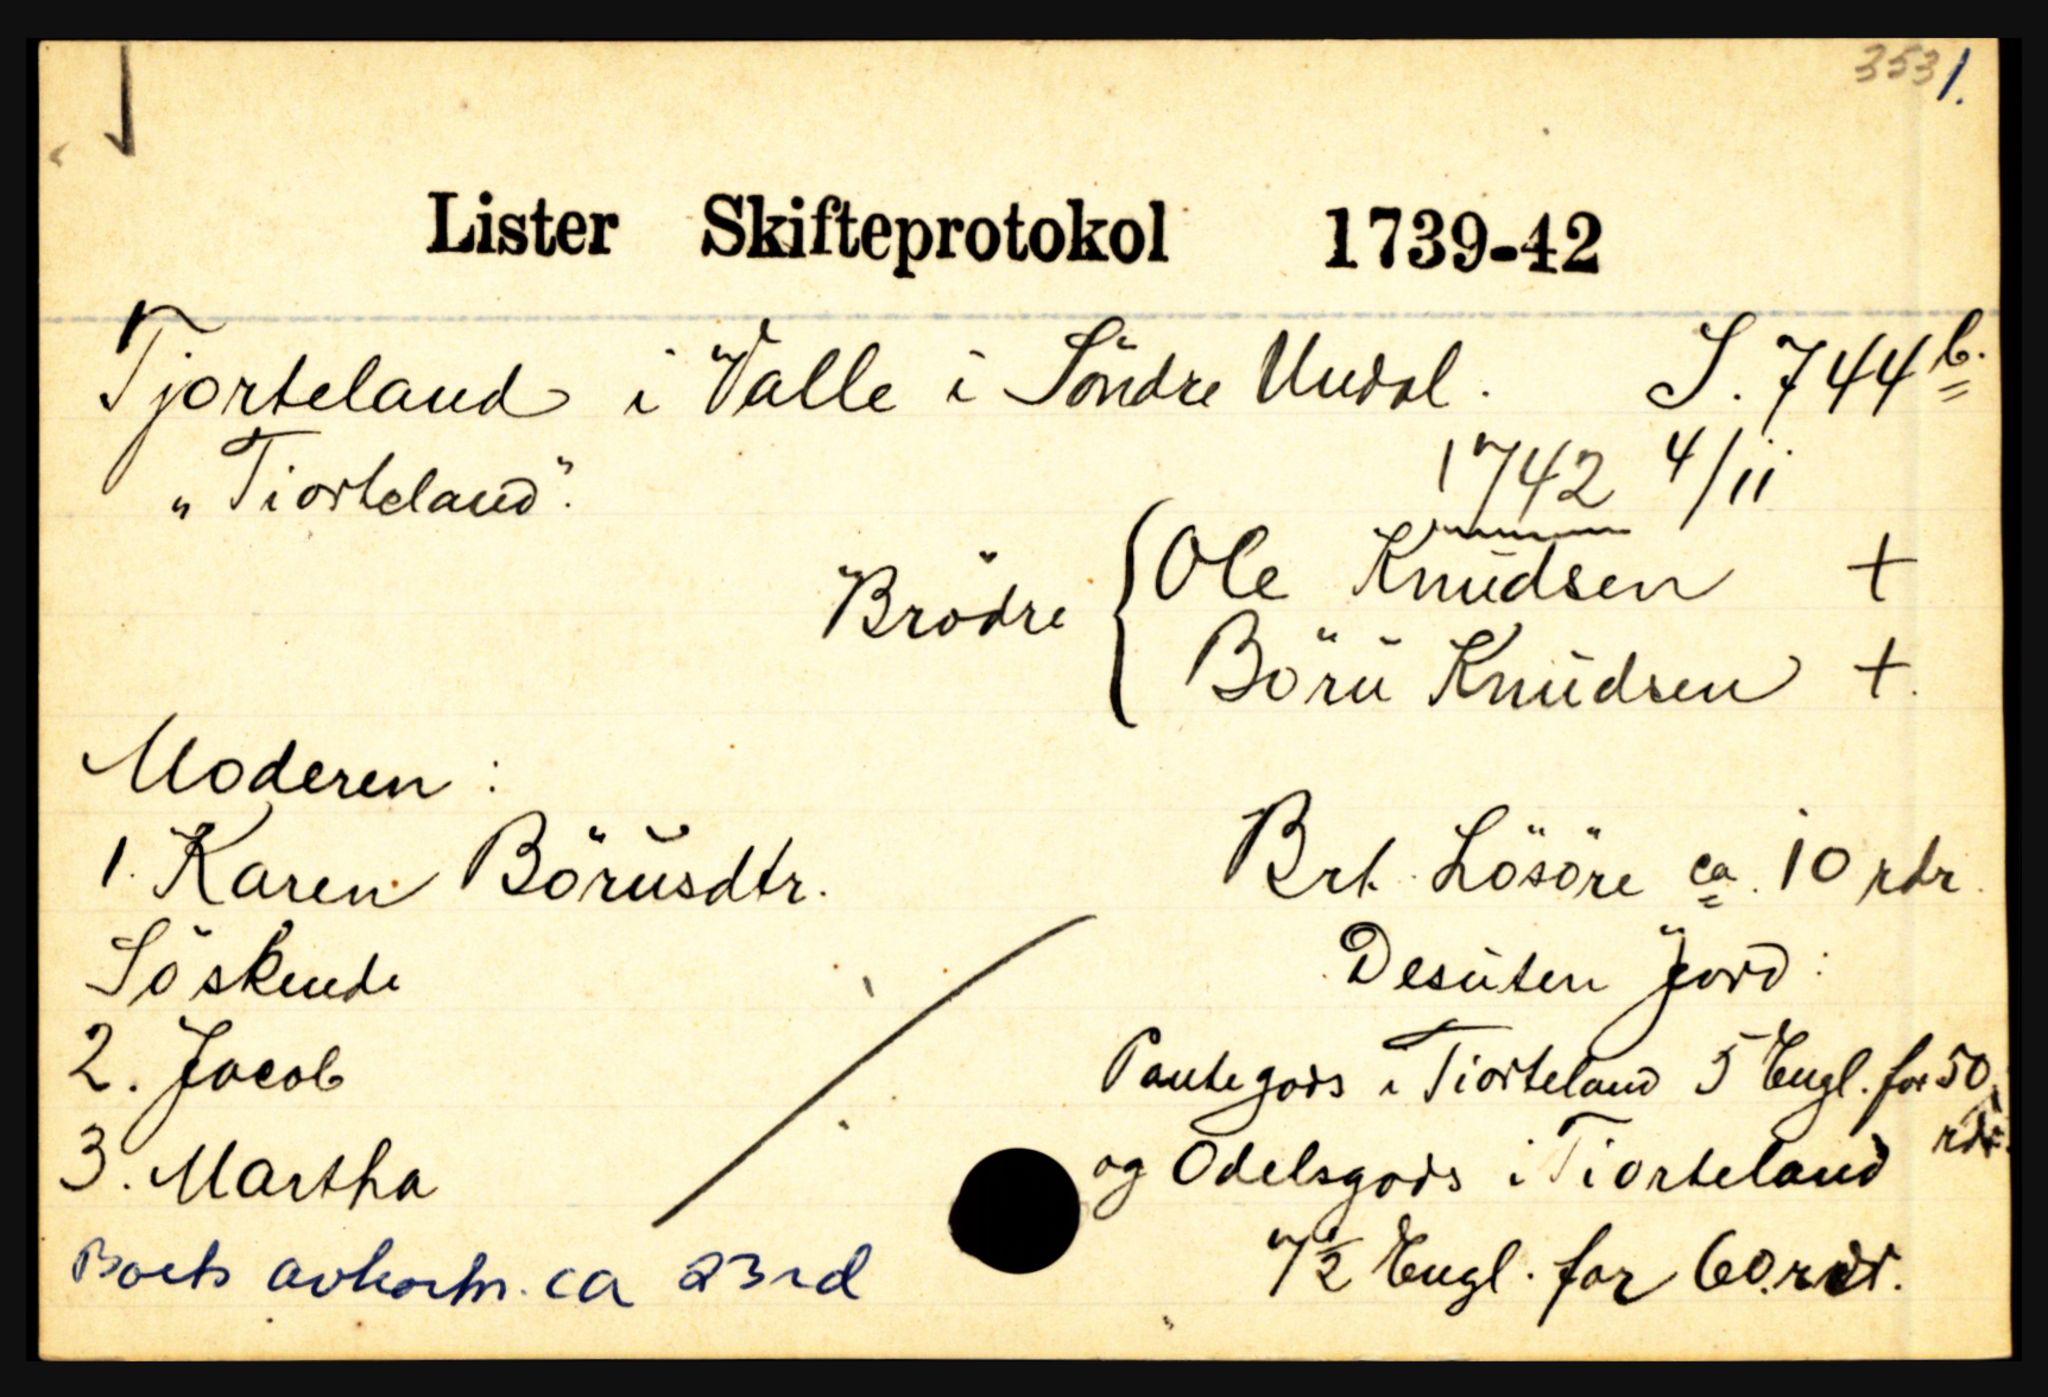 3531.
Lister Skifteprotokol 1739-42
Tjorteland i Valle i Söndre Undal. S. 744 b.
"Tiorteland".
1742 4/11
Brödre { Ole Knudsen +
Böru Knudsen +.
Moderen :
1. Karen Börusdtr.
Söskende
2. Jacob
3. Martha
Boets avkortn. ca 23 rd
Brt. Lösöre ca. 10 rdr.
Desuten Jord :
Pantegods i Tiorteland 5 Engl. for 50
rdr.
og Odelsgods i Tiorteland
7½ Engl. for 60 rdr.